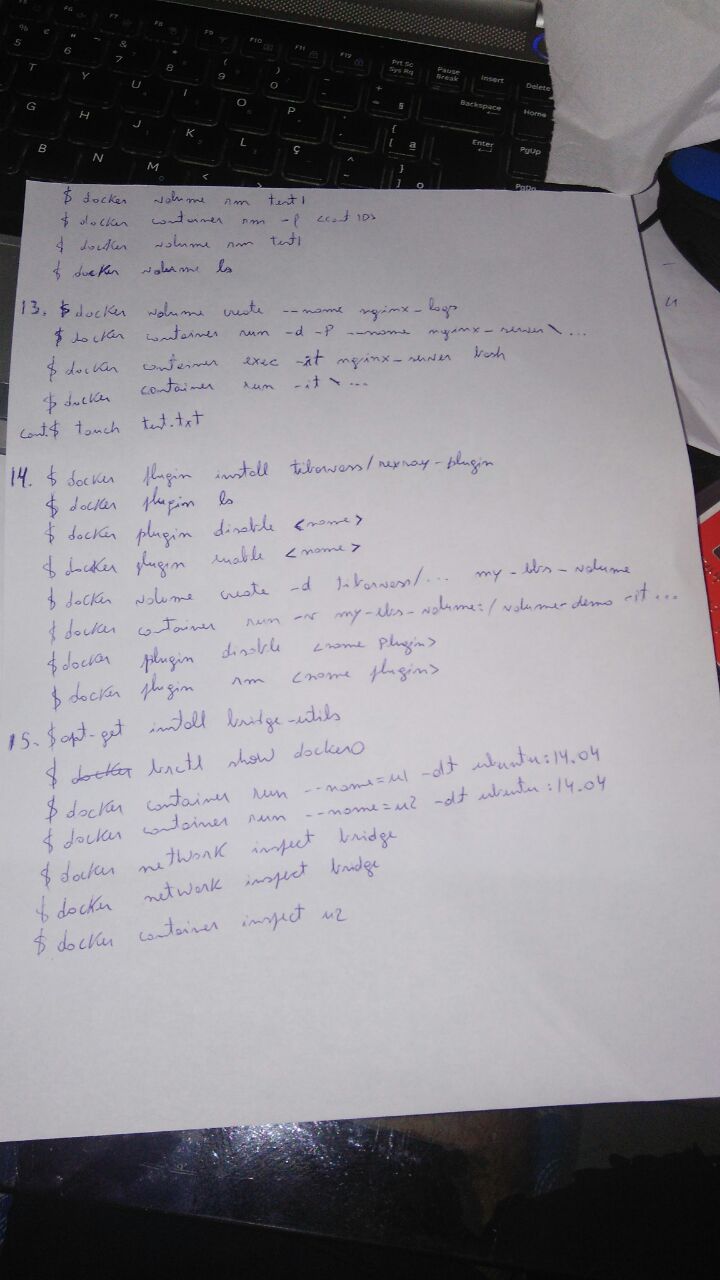 F5 F6 F7 F8 F9 F10 F11 F12 Prt Sc Sys Rq Pause Break Insert Delete
% 5 & 7 * 8 ( 9 ) 0 Backspace Home
T Y U I O P Enter PgUp
G H J K L Ç PgDn
B N M <
$ docker volume rm test1
$ docker container rm -f <cont ID>
$ docker volume rm test1
$ docker volume ls
13. $ docker volume create --name nginx-logs
$ docker container run -d -P --name nginx-server \ ...
$ docker container exec -it nginx-server bash
$ docker container run -it \ ...
cont$ touch test.txt
14. $ docker plugin install tiborvass/rexray-plugin
$ docker plugin ls
$ docker plugin disable <nome>
$ docker plugin enable <nome>
$ docker volume create -d tiborvass/... my-ebs-volume
$ docker container run -v my-ebs-volume:/volume-demo -it ...
$ docker plugin disable <nome plugin>
$ docker plugin rm <nome plugin>
15. $ apt-get install bridge-utils
$ docker brctl show docker0
$ docker container run --name=u1 -dt ubuntu:14.04
$ docker container run --name=u2 -dt ubuntu:14.04
$ docker network inspect bridge
$ docker network inspect bridge
$ docker container inspect u2